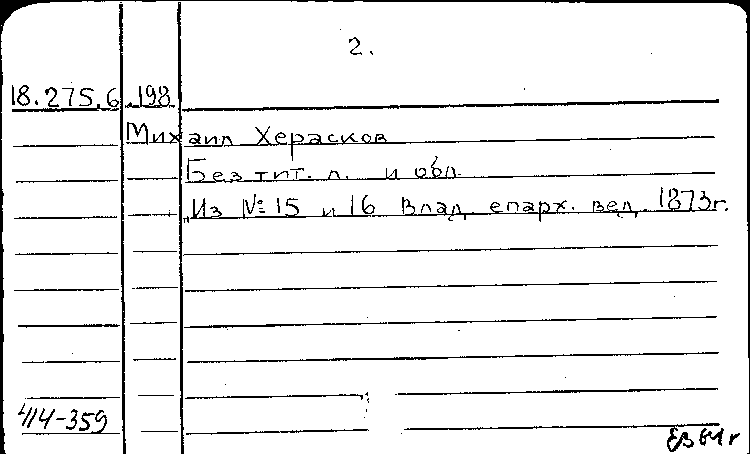 2.
18.275.6.198
Михаил Херасков
Без тит. л. и обл.
Из № 15 и 16 Влад. епарх. вед. 1873г.
414-359